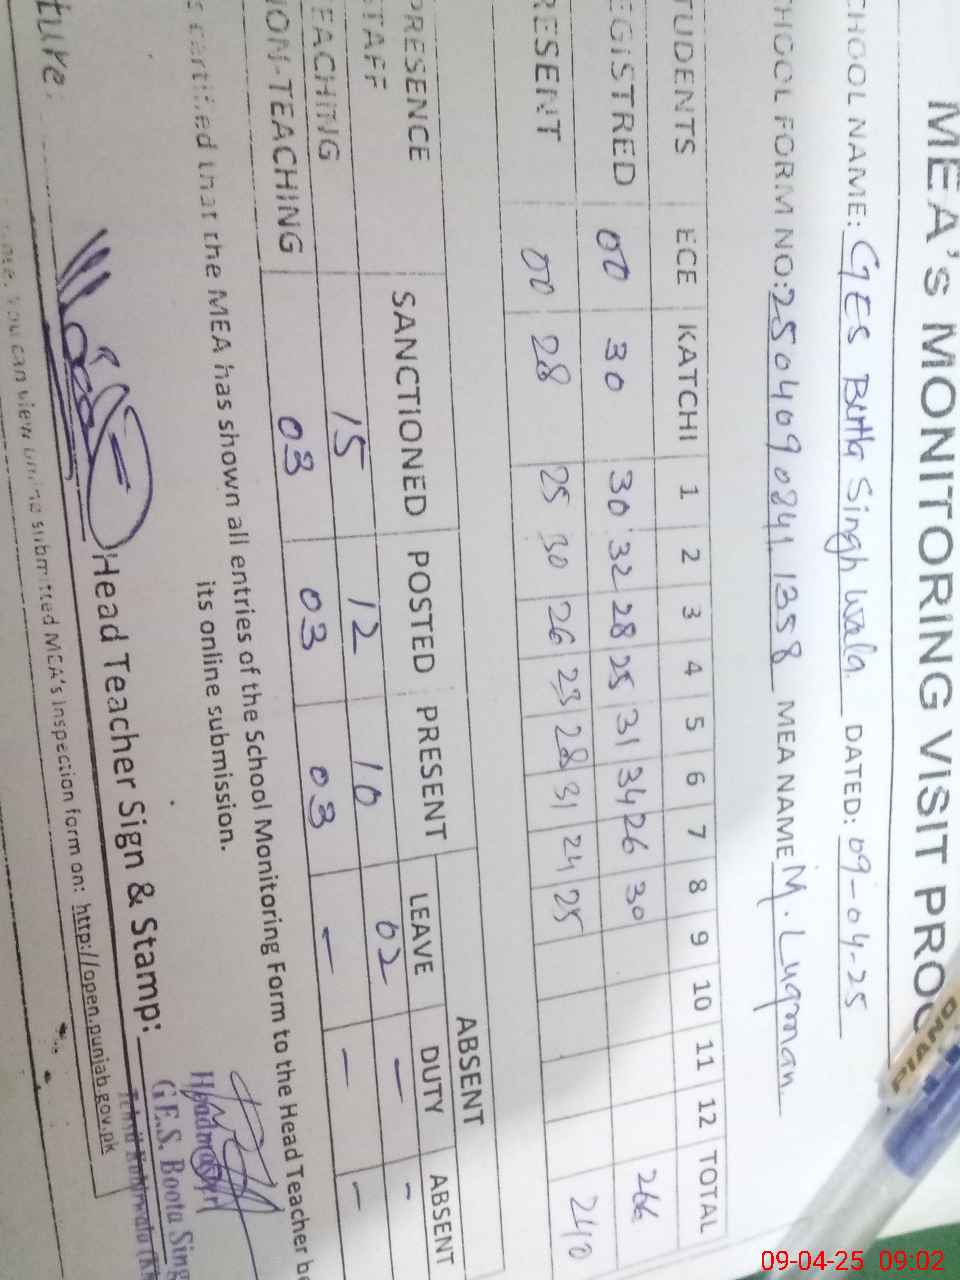 MEA's MONITORING VISIT PROC
CHOOL NAME: GES Butta Singh Wala DATED: 09-04-25
CHOOL FORM NO: 2504090841 1358 MEA NAME M. Luqman
TUDENTS ECE KATCHI 1 2 3 4 5 6 7 8 9 10 11 12 TOTAL
EGISTRED 00 30 30 32 28 25 31 34 26 30 266
RESENT 00 28 25 30 26 23 28 31 24 25 240
PRESENCE SANCTIONED POSTED PRESENT ABSENT
STAFF LEAVE DUTY ABSENT
EACHING 15 12 10 02 - - 
NON-TEACHING 03 03 03 - - -
s certified that the MEA has shown all entries of the School Monitoring Form to the Head Teacher be
its online submission.
ture:
Head Teacher Sign & Stamp:
Headmaster
G.E.S. Boota Sing
Tehsil Kabirwala (Kh
note. You can view online submitted MEA's Inspection form on: http://open.punjab.gov.pk
PIANO
09-04-25 09:02